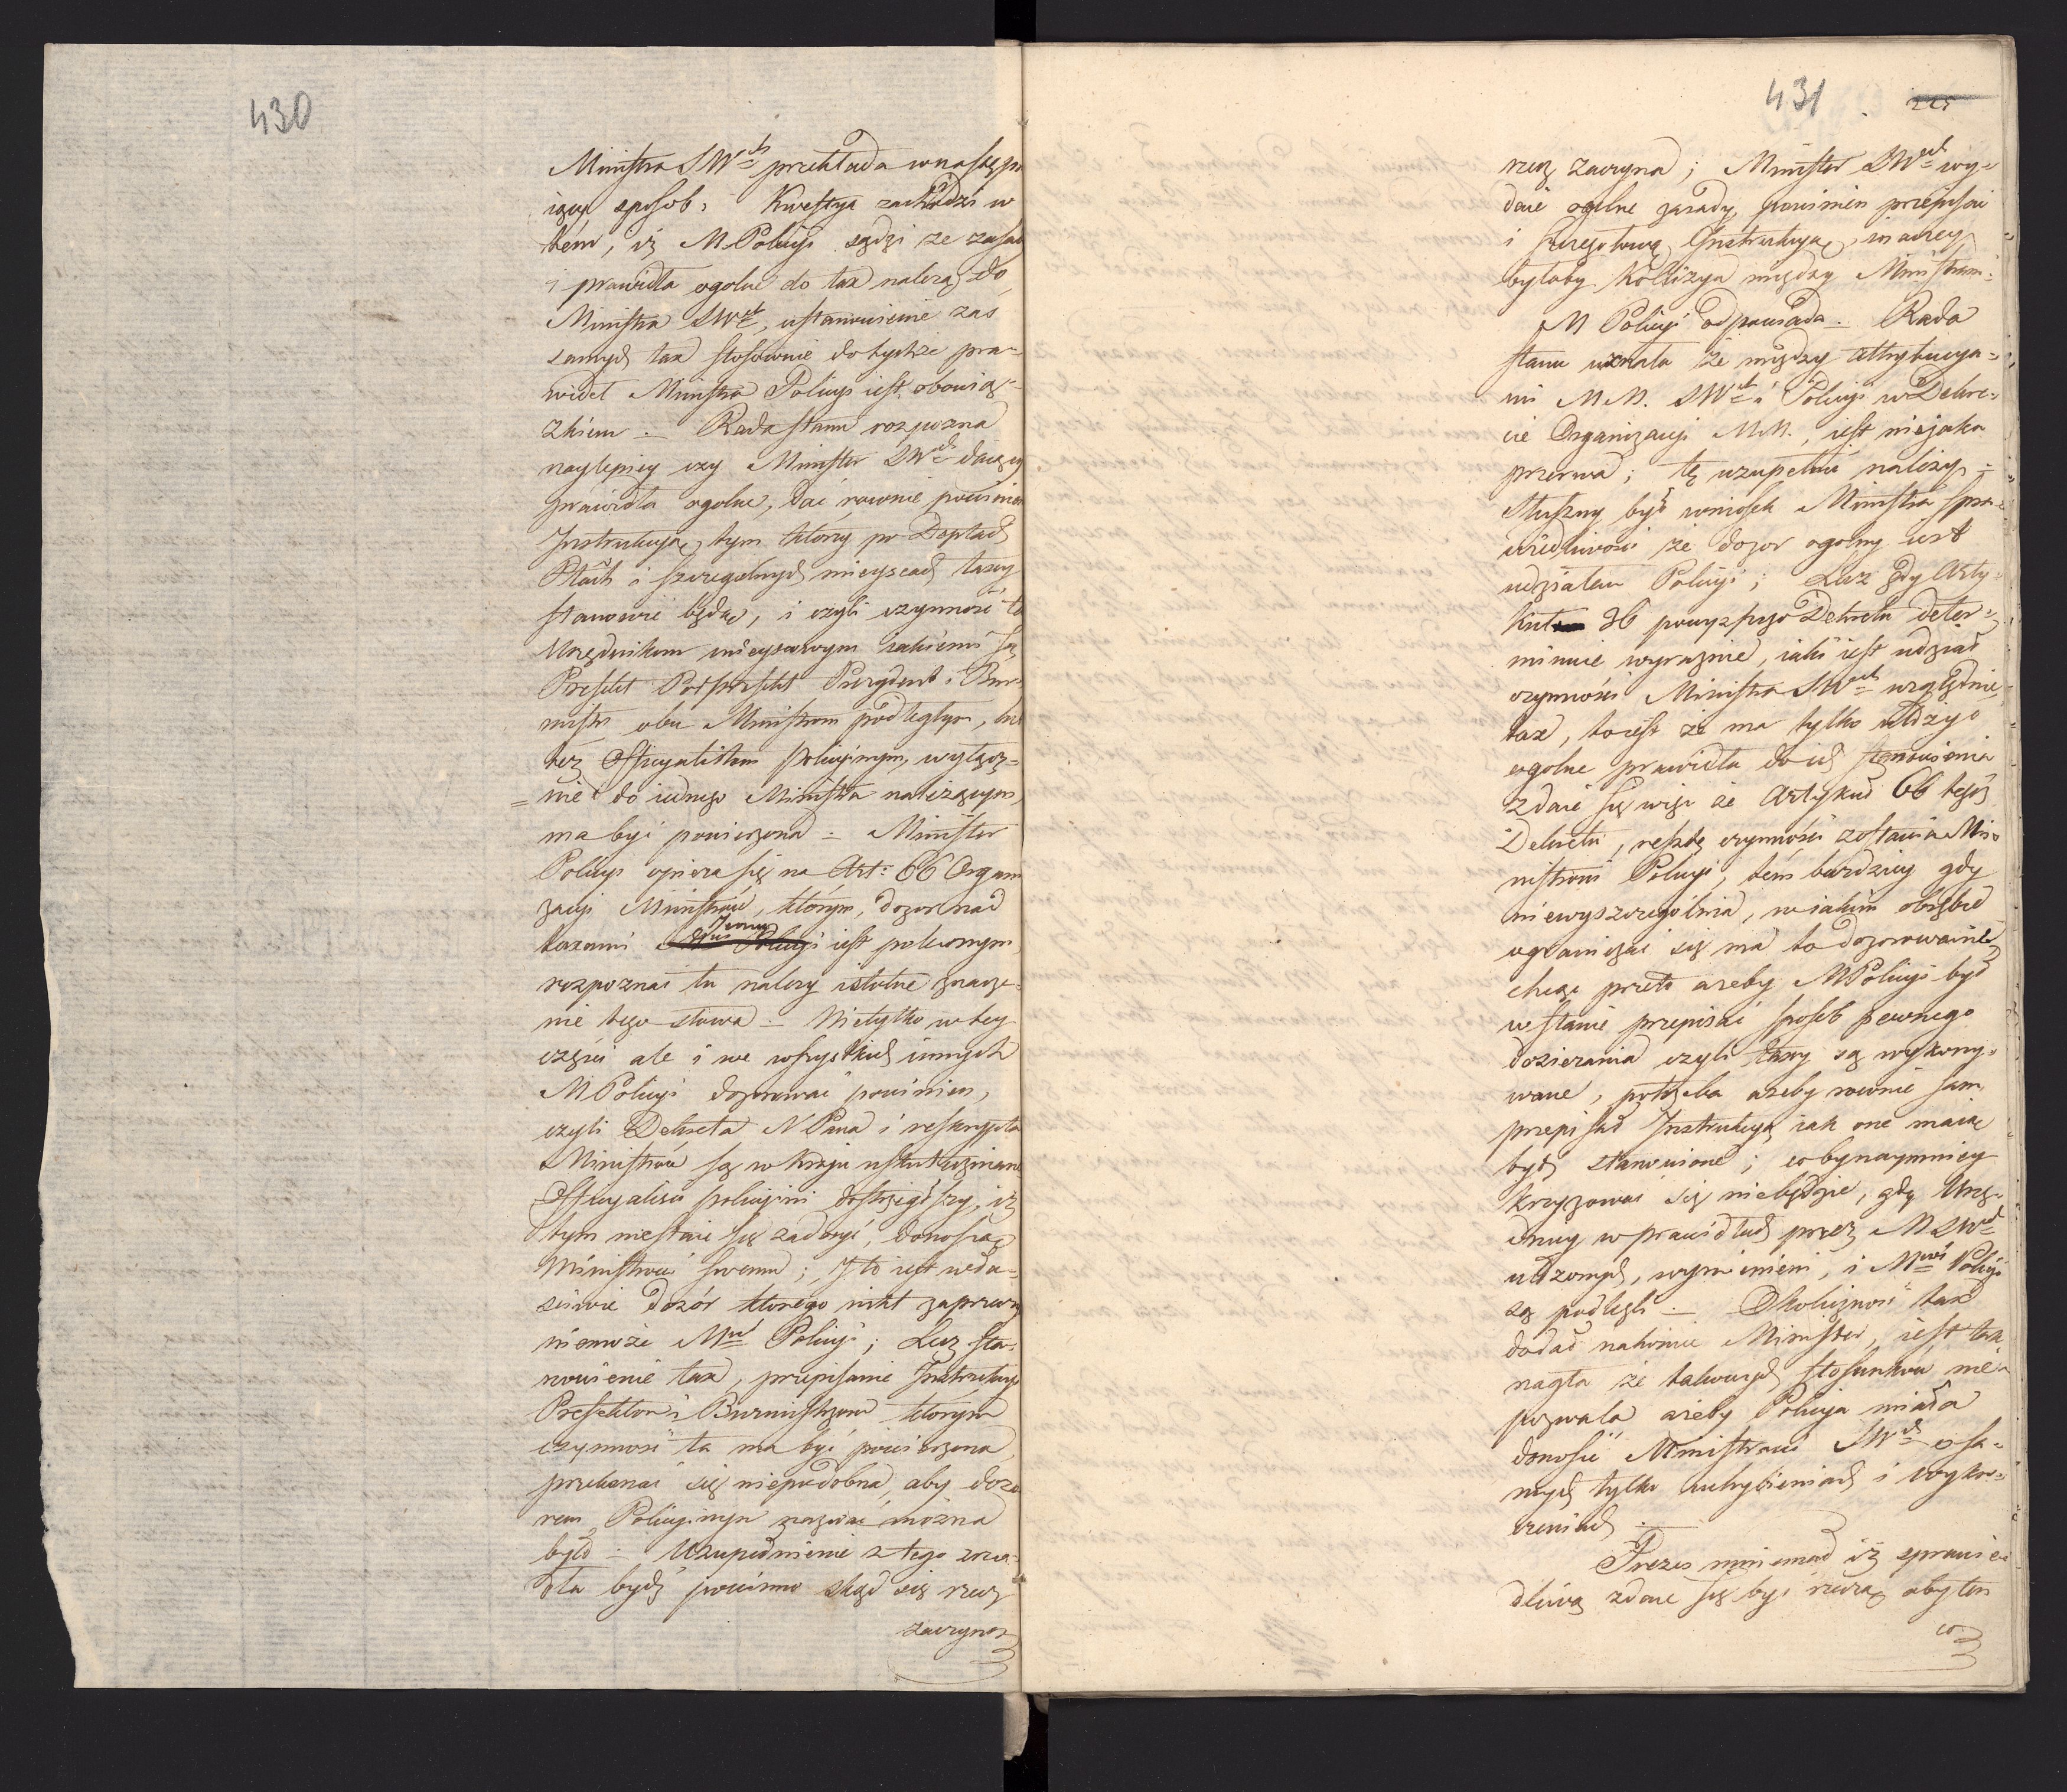 430
Ministra SWch przekłada w nastę pu
iący sposob: Kwestya zachodzi w
tém, iż M Policyi sądzi ze zasad
i prawidła ogolne do tax należą do
Ministra SWch, ustanowienie zaś
samych tax stosownie do tychże pra-
wideł Ministra Policyi iest obowiąz-
zkiem. Rada stanu rozpozna
naylepiey czy Minister SWch daiący
prawidła ogolne, dać rownie powinien
Instrukcyą, tym ktorzy po Deptach
Ptach i szczegulnych mieyscach taxy
stanowić będą, i czyli czynność ta
Urzędnikom mieyscowym iakiemi są
Prefekt Podprefekt Prezydent i Bur-
mistrz obu Ministrom podległym, lub
też Officyalistom policyinym, wyłącz=
=nie do iednego Ministra należącym,
ma być powierzona. Minister
Policyi opiera się na Art: 66 Organi
zacyi Ministrów, którym, dozor nad
taxami Jemu iest poleconym
rozpoznać tu należy istotne znacze-
nie tego słowa. Nietylko w tey
części ale i we wszystkich innych
M Policyi dozorować powinien,
czyli Dekreta N Pana i reskrypta
Ministrów są w kraju uskuteczniane
Officyalisci policyini dostrzegłszy, iż
tym niestaie się zadosyć, donoszą
Ministrowi swemu; I to iest wła-
ściwie dozór ktorego nikt zaprzeczyć
niemoże Mwi Policyi; Lecz sta-
nowienie tax, przepisanie Instrukcyi
Prefektom i Burmistrzom którym
czynność ta ma być powierzona
przekonać się niepodobna, aby dozo
rem Policyinym nazwać można
było. Uzupełnienie z tego zrzó-
dła bydź powinno skąd się rzecz
zaczyna
431
225
rzecz zaczyna; Minister SWch wy-
daie ogolne zasady, powinien przepisać
i szczegułową Instrukcyą, inaczey
byłaby kollizya między Ministrami.
M Policyi odpowiada. Rada
stanu uznała że między attrybucya-
mi MM. SWch i Policyi w Dekre-
cie Organizacyi MM., iest niejaka
przerwa; tę uzupełnić należy.
Słuszny był wniosek Ministra spra-
wiedliwości że dozor ogolny iest
udziałem Policyi; Lecz gdy Arty-
kuł 36 powyzszego Dekretu deter-
minuie wyraznie, iaki iest udział
czynności Ministra SWch względnie
tax, to iest że ma tylko ułożyć
ogolne prawidła do ich stanowienia
zdaie się więc że Artykuł 66 tegoż
Dekretu, resztę czynności zostawia Mi-
nistrowi Policyi, tém bardziey gdy
niewyszczególnia, w iakim obrębie
ograniczać się ma to dozorowanie,
chcąc przeto ażeby M Policyi był
w stanie przepisać sposob pewnego
dozierania czyli taxy są wykony-
wane, potrzeba ażeby rownie sam
przepisał Instrukcyą iak one maią
bydź stanowione; co bynaymniey
krzyżować się niebędzie, gdy Urzę-
dnicy w prawidłach przez M SWch
ułożonych, wymienieni, i Mwi Policyi
są podlegli. Okoliczność tax
dodał nakoniec Minister, iest tak
nagła że takowych stosunków nie
pozwala ażeby Policya miała
donosić Ministrowi SWch o sa-
mych tylko uchybieniach i wykro-
czeniach.
Prezes mniemał iż sprawie-
dliwą zdaie się być rzeczą aby ten
co